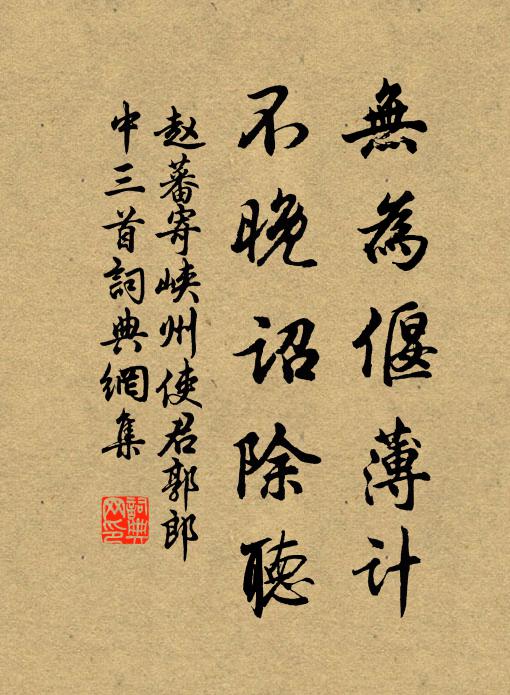 無為偃薄計
不晚詔除聽
赵蕃寄峡州使君郭郎
中三首詞典網集
詞典
网印